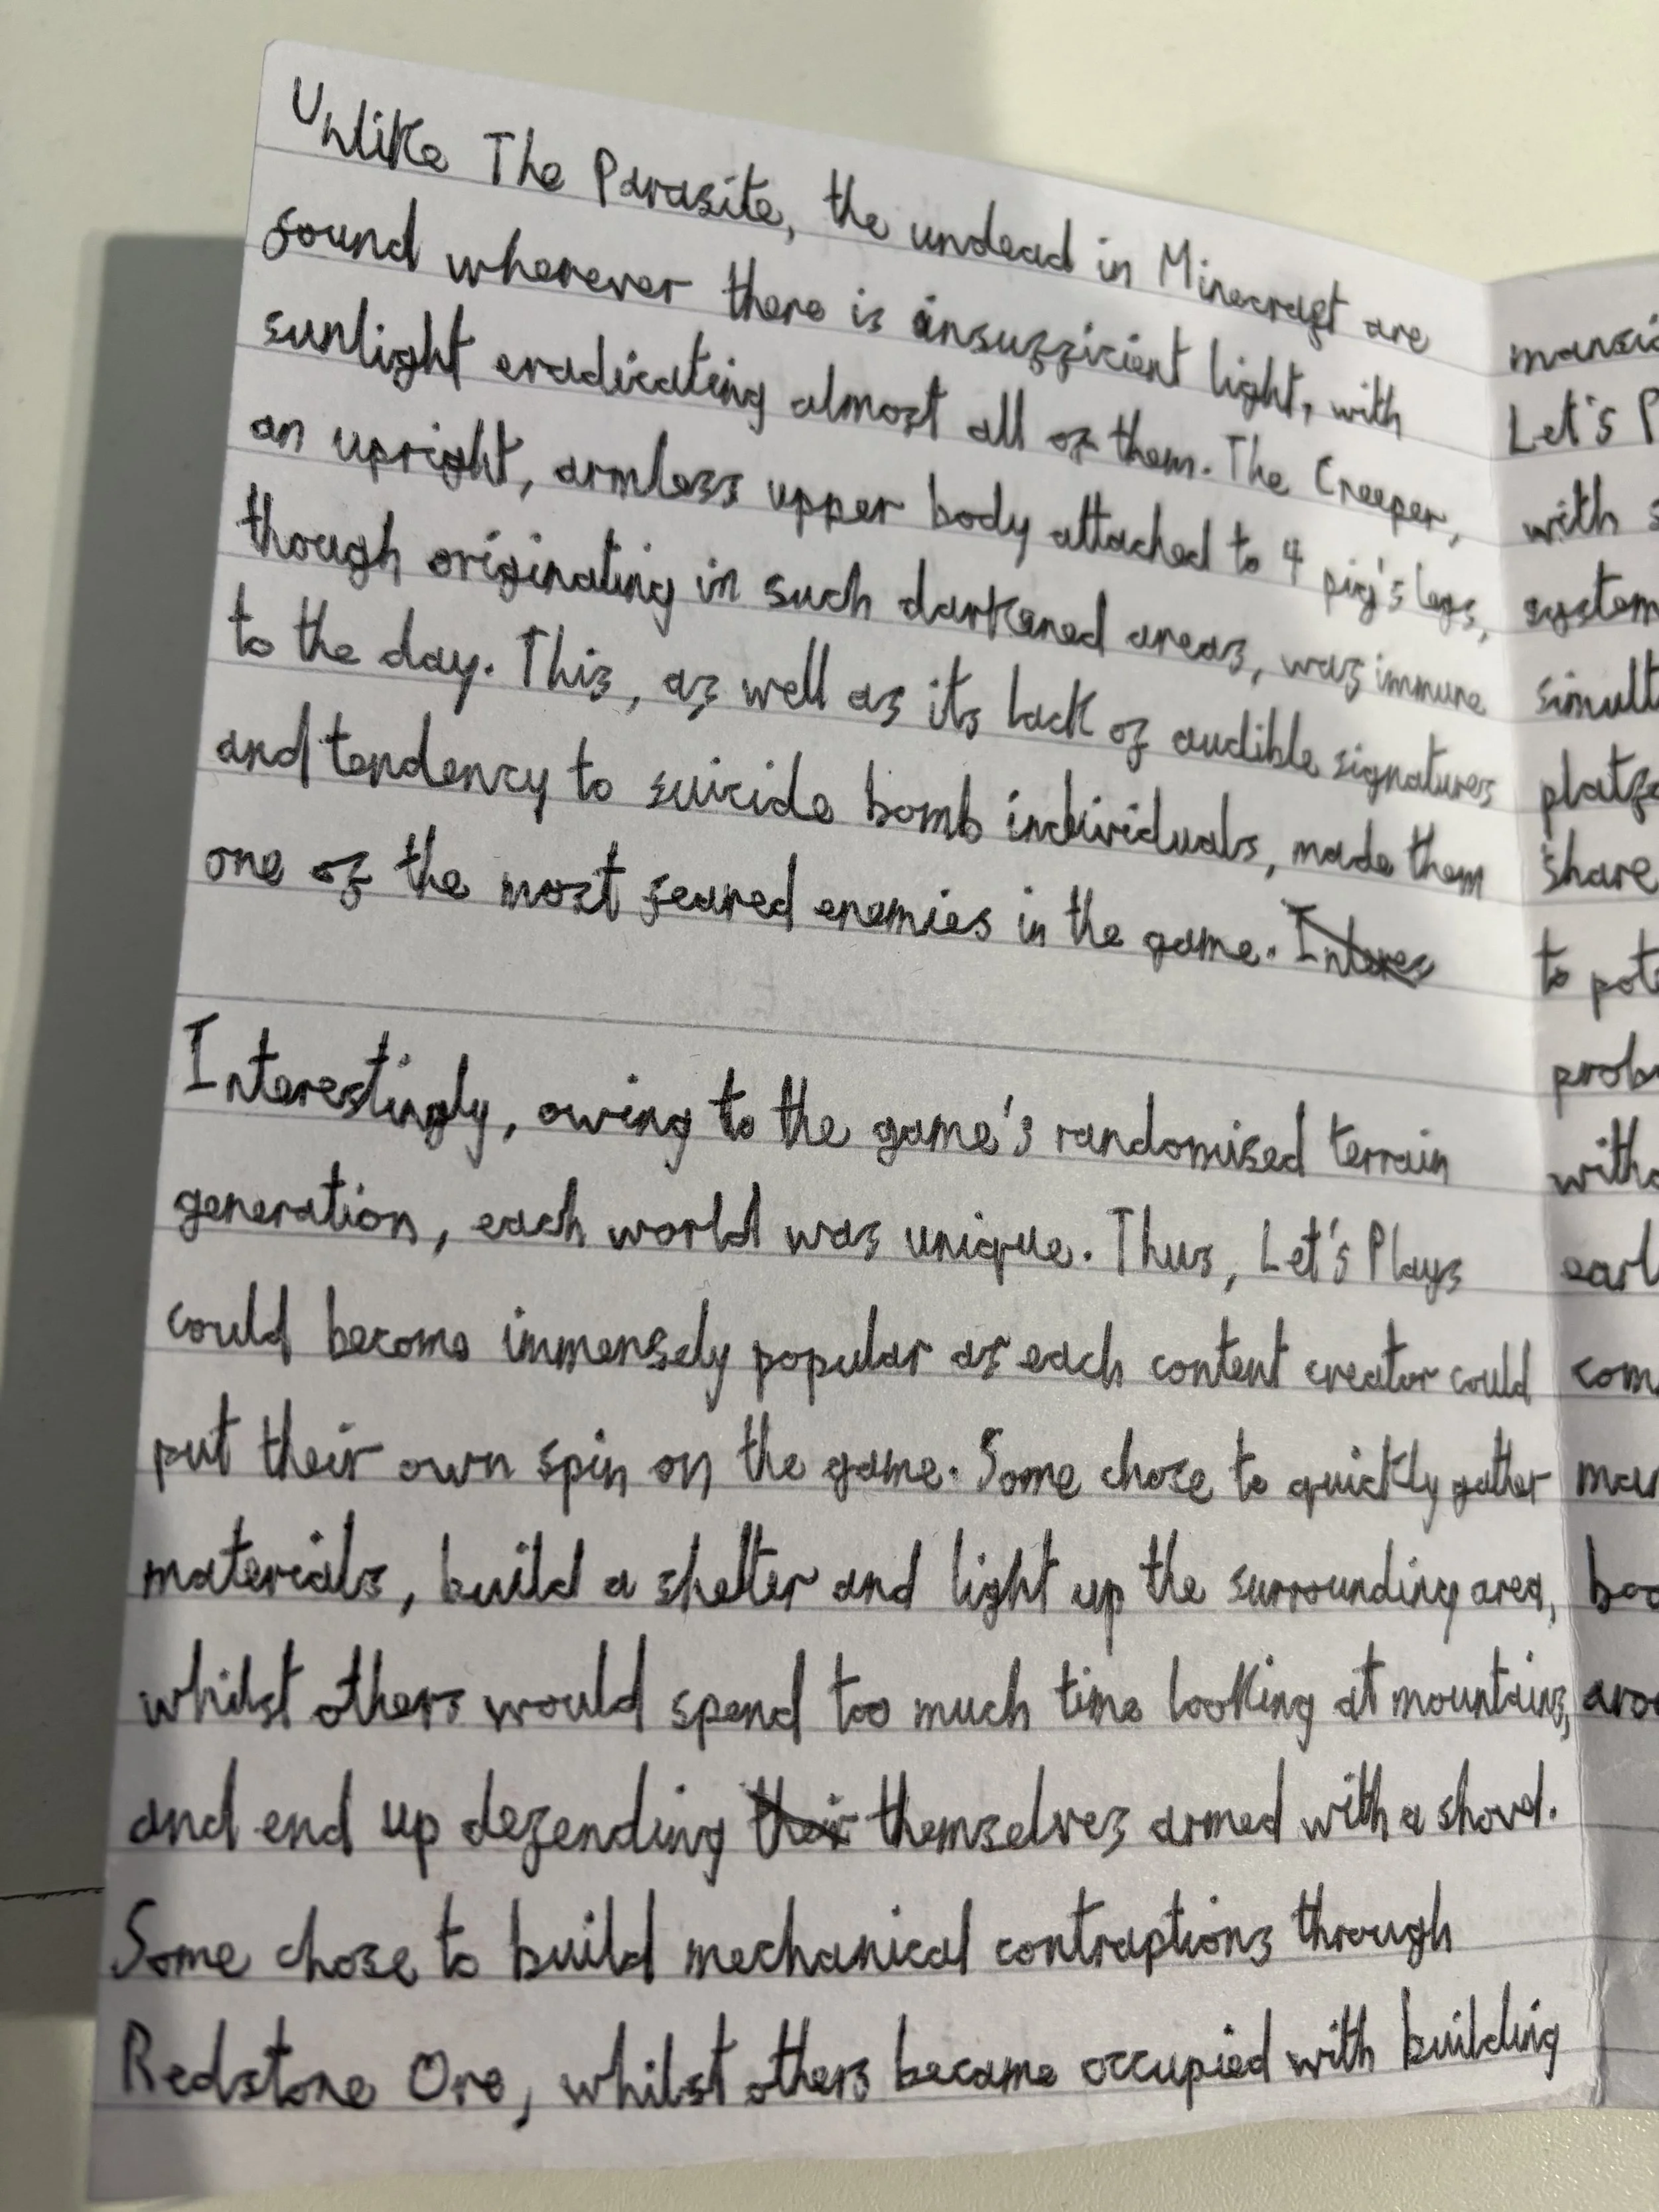 Unlike The Parasite, the undead in Minecraft are
found wherever there is insufficient light, with
sunlight eradicating almost all of them. The Creeper,
an upright, armless upper body attached to 4 pig's legs,
though originating in such darkened areas, was immune
to the day. This, as well as its lack of audible signatures
and tendency to suicide bomb individuals, made them
one of the most feared enemies in the game. Interes
Interestingly, owing to the game's randomised terrain
generation, each world was unique. Thus, Let's Plays
could become immensely popular as each content creator could
put their own spin on the game. Some chose to quickly gather
materials, build a shelter and light up the surrounding area,
whilst others would spend too much time looking at mountains,
and end up defending their themselves armed with a shovel.
Some chose to build mechanical contraptions through
Redstone Ore, whilst others became occupied with building
Let's
with
system
share
to